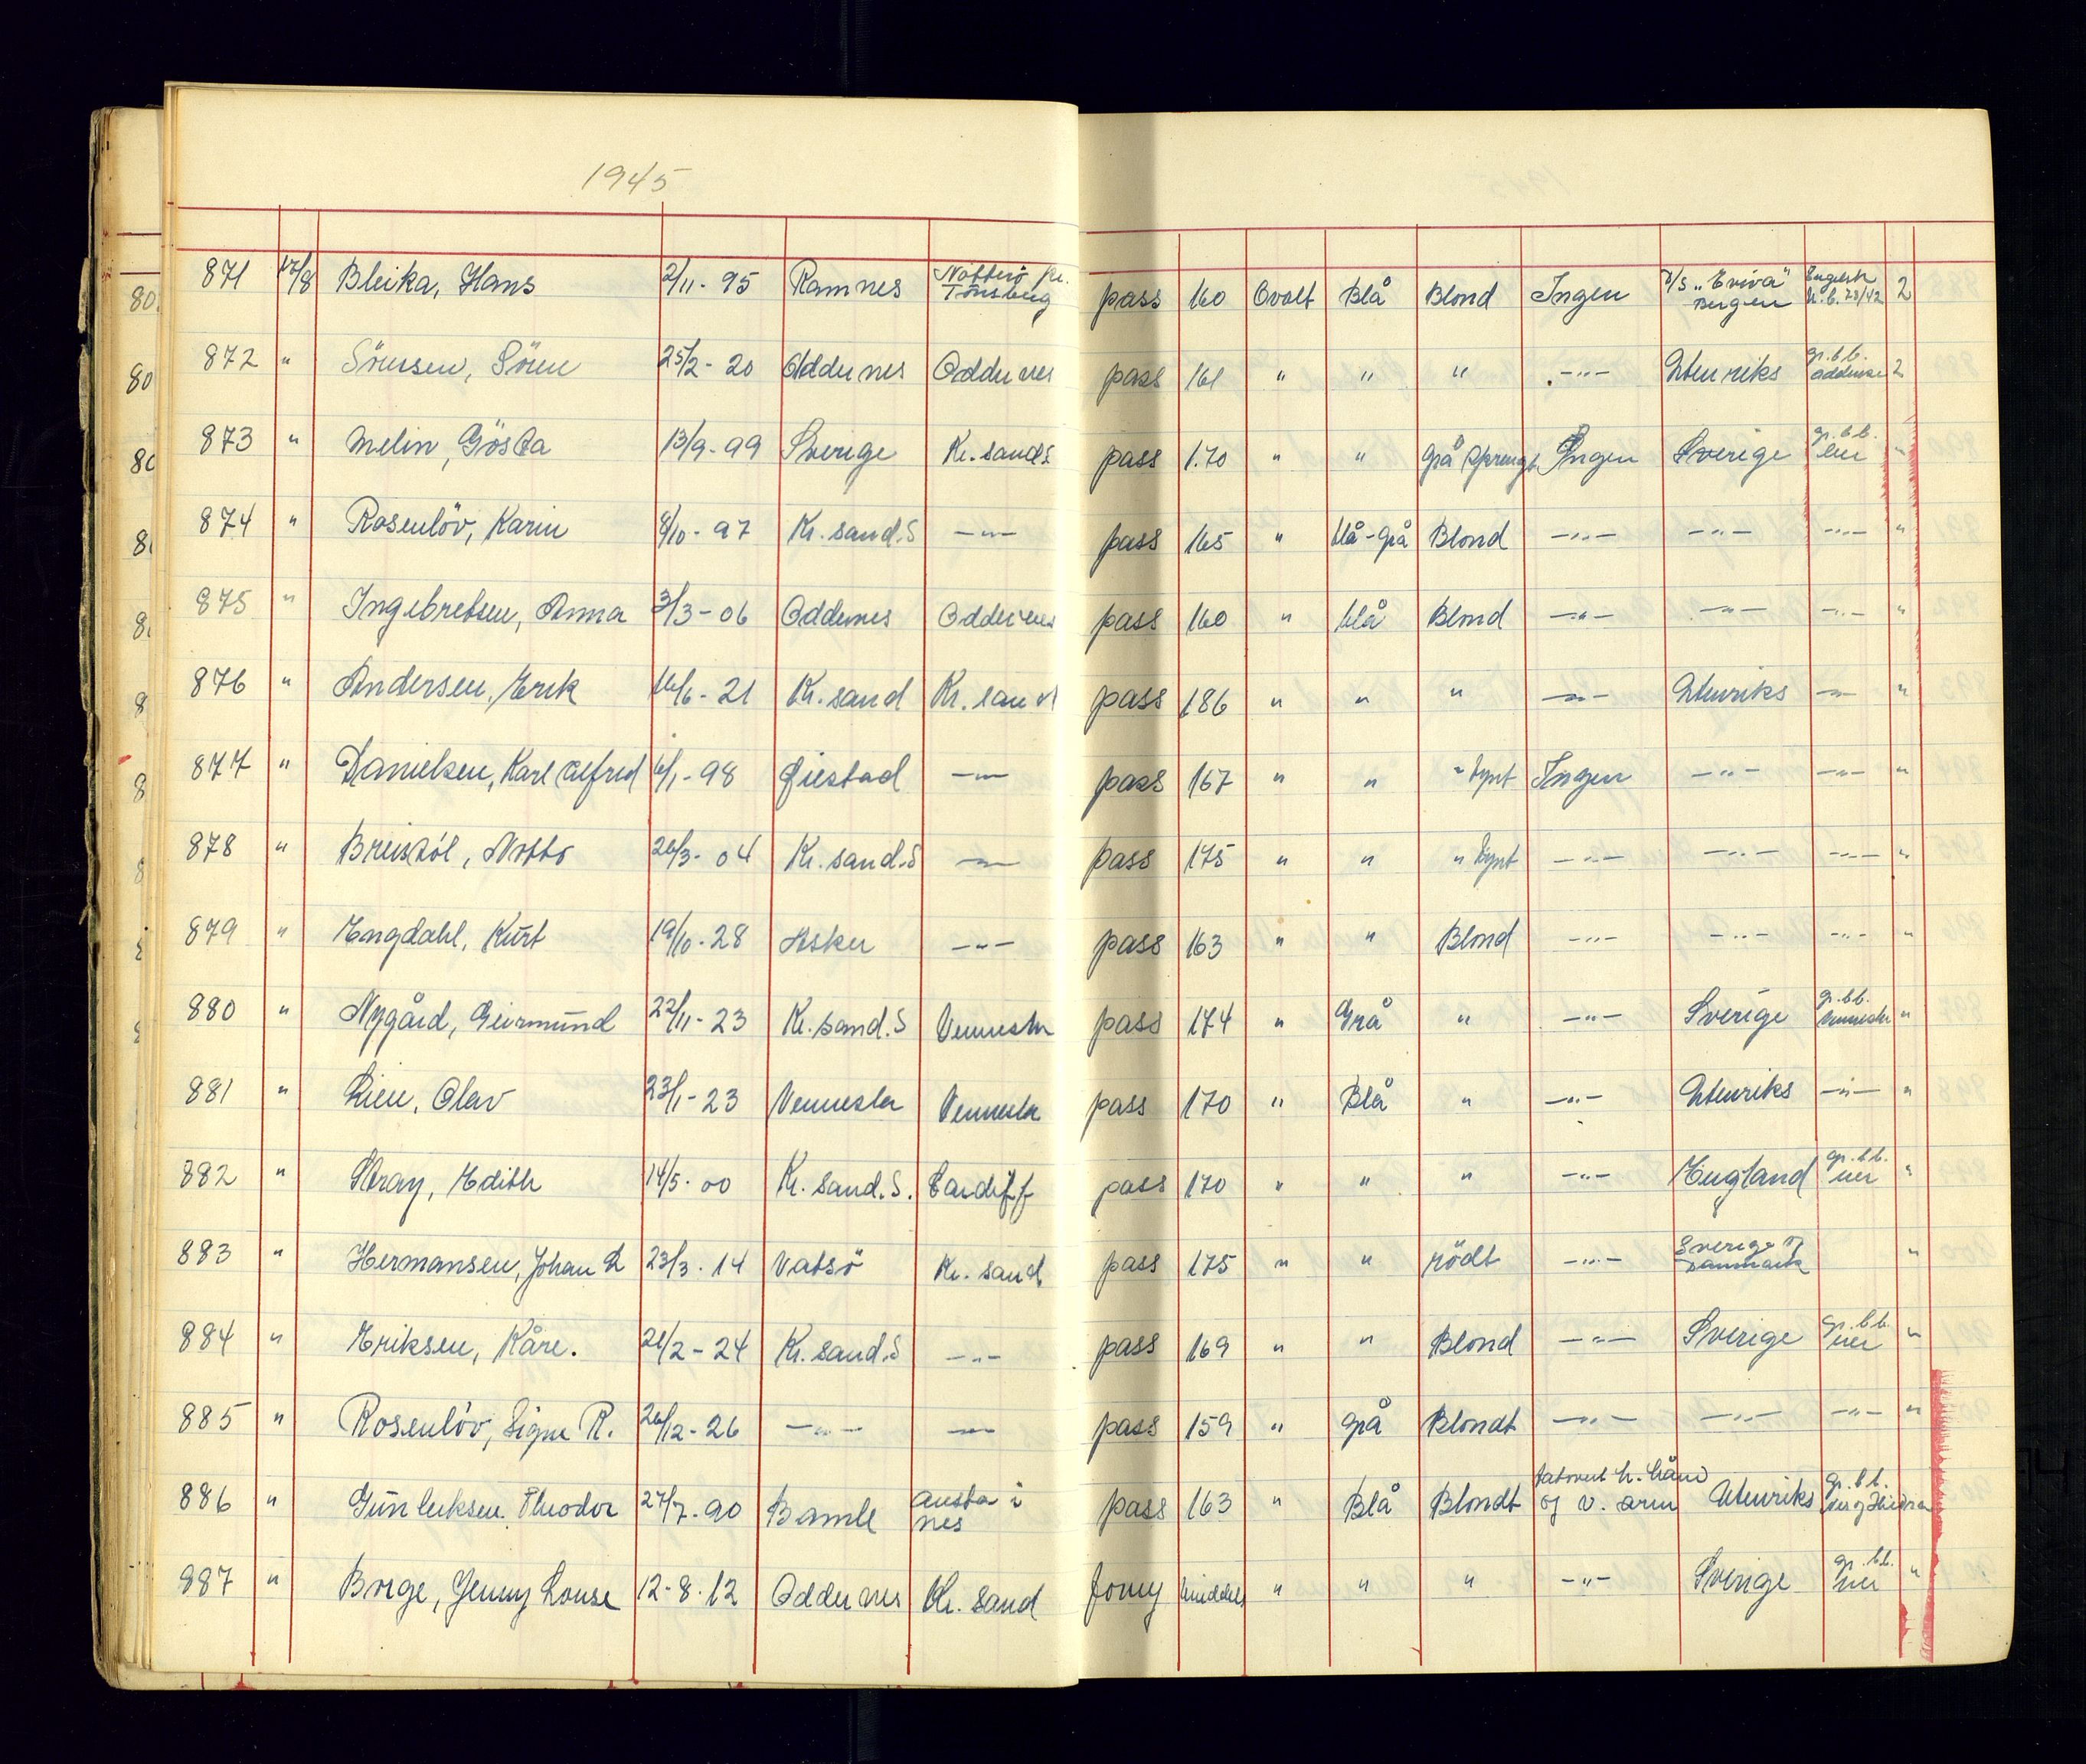 1945
871 17/8 Bleika, Hans 2/11-95 Ramnes Nötterö pr. Tönsberg pass 160 Ovalt Blå Blond Ingen D/S „Eviva" Bergen Engelsk 2
872 " Sörensen, Sören 25/2-20 Oddernes Oddernes pass 161 " " " -"- Utenriks gr.b.b. Oddernes 2
873 " Melin, Gösta 13/9-99 Sverige Kr.sand S pass 1.70 " " Grå sprengt Ingen Sverige gr.b.b. her "
874 " Rosenlöv, Karin 8/10-97 Kr.sand.S -"- pass 165 " blå-grå Blond -"- -"- -"- "
875 " Ingebretsen, Anna 3/3-06 Oddernes Oddernes pass 160 " blå Blond -"- -"- -"- "
876 " Andersen, Erik 16/6-21 Kr.sand Kr.sand pass 186 " " " -"- Utenriks -"- "
877 " Danielsen, Karl Alfred 6/1-98 Øiestad -"- pass 167 " " " tynt Ingen -"- -"- "
878 " Breistöl, Notto 26/3-04 Kr.sand.S -"- pass 175 " " " tynt -"- -"- -"- "
879 " Engdahl, Kurt 19/10-28 Asker -"- pass 163 " " Blond -"- -"- -"- "
880 " Nygård, Geirmund 22/11-23 Kr.sand.S Vennesla pass 174 " Grå " -"- Sverige gr.b.b. Vennesla "
881 " Lien, Olav 23/1-23 Vennesla Vennesla pass 170 " Blå " -"- Utenriks -"- "
882 " Stray, Edith 14/5-00 Kr.sand.S. Cardiff pass 170 " " " -"- England gr.b.b. her "
883 " Hermansen, Johan L 23/3-14 Vatsö Kr.sand pass 175 " " rödt -"- Sverige og Danmark "
884 " Eriksen, Kåre. 21/2-24 Kr.sand.S -"- pass 169 " " Blond -"- Sverige gr.b.b. her "
885 " Rosenlöv, Signe R. 26/12-26 -"- -"- pass 159 " grå Blondt -"- -"- -"- "
886 " Gunleiksen, Theodor 27/7-90 Bamle pass 163 " Blå Blondt tatovert h. hånd og v. arm Utenriks gr.b.b.
887 " Borge, Jenny Louise 12-8-12 Oddernes Kr.sand forny middels " " " -"- Sverige gr.b.b. her "